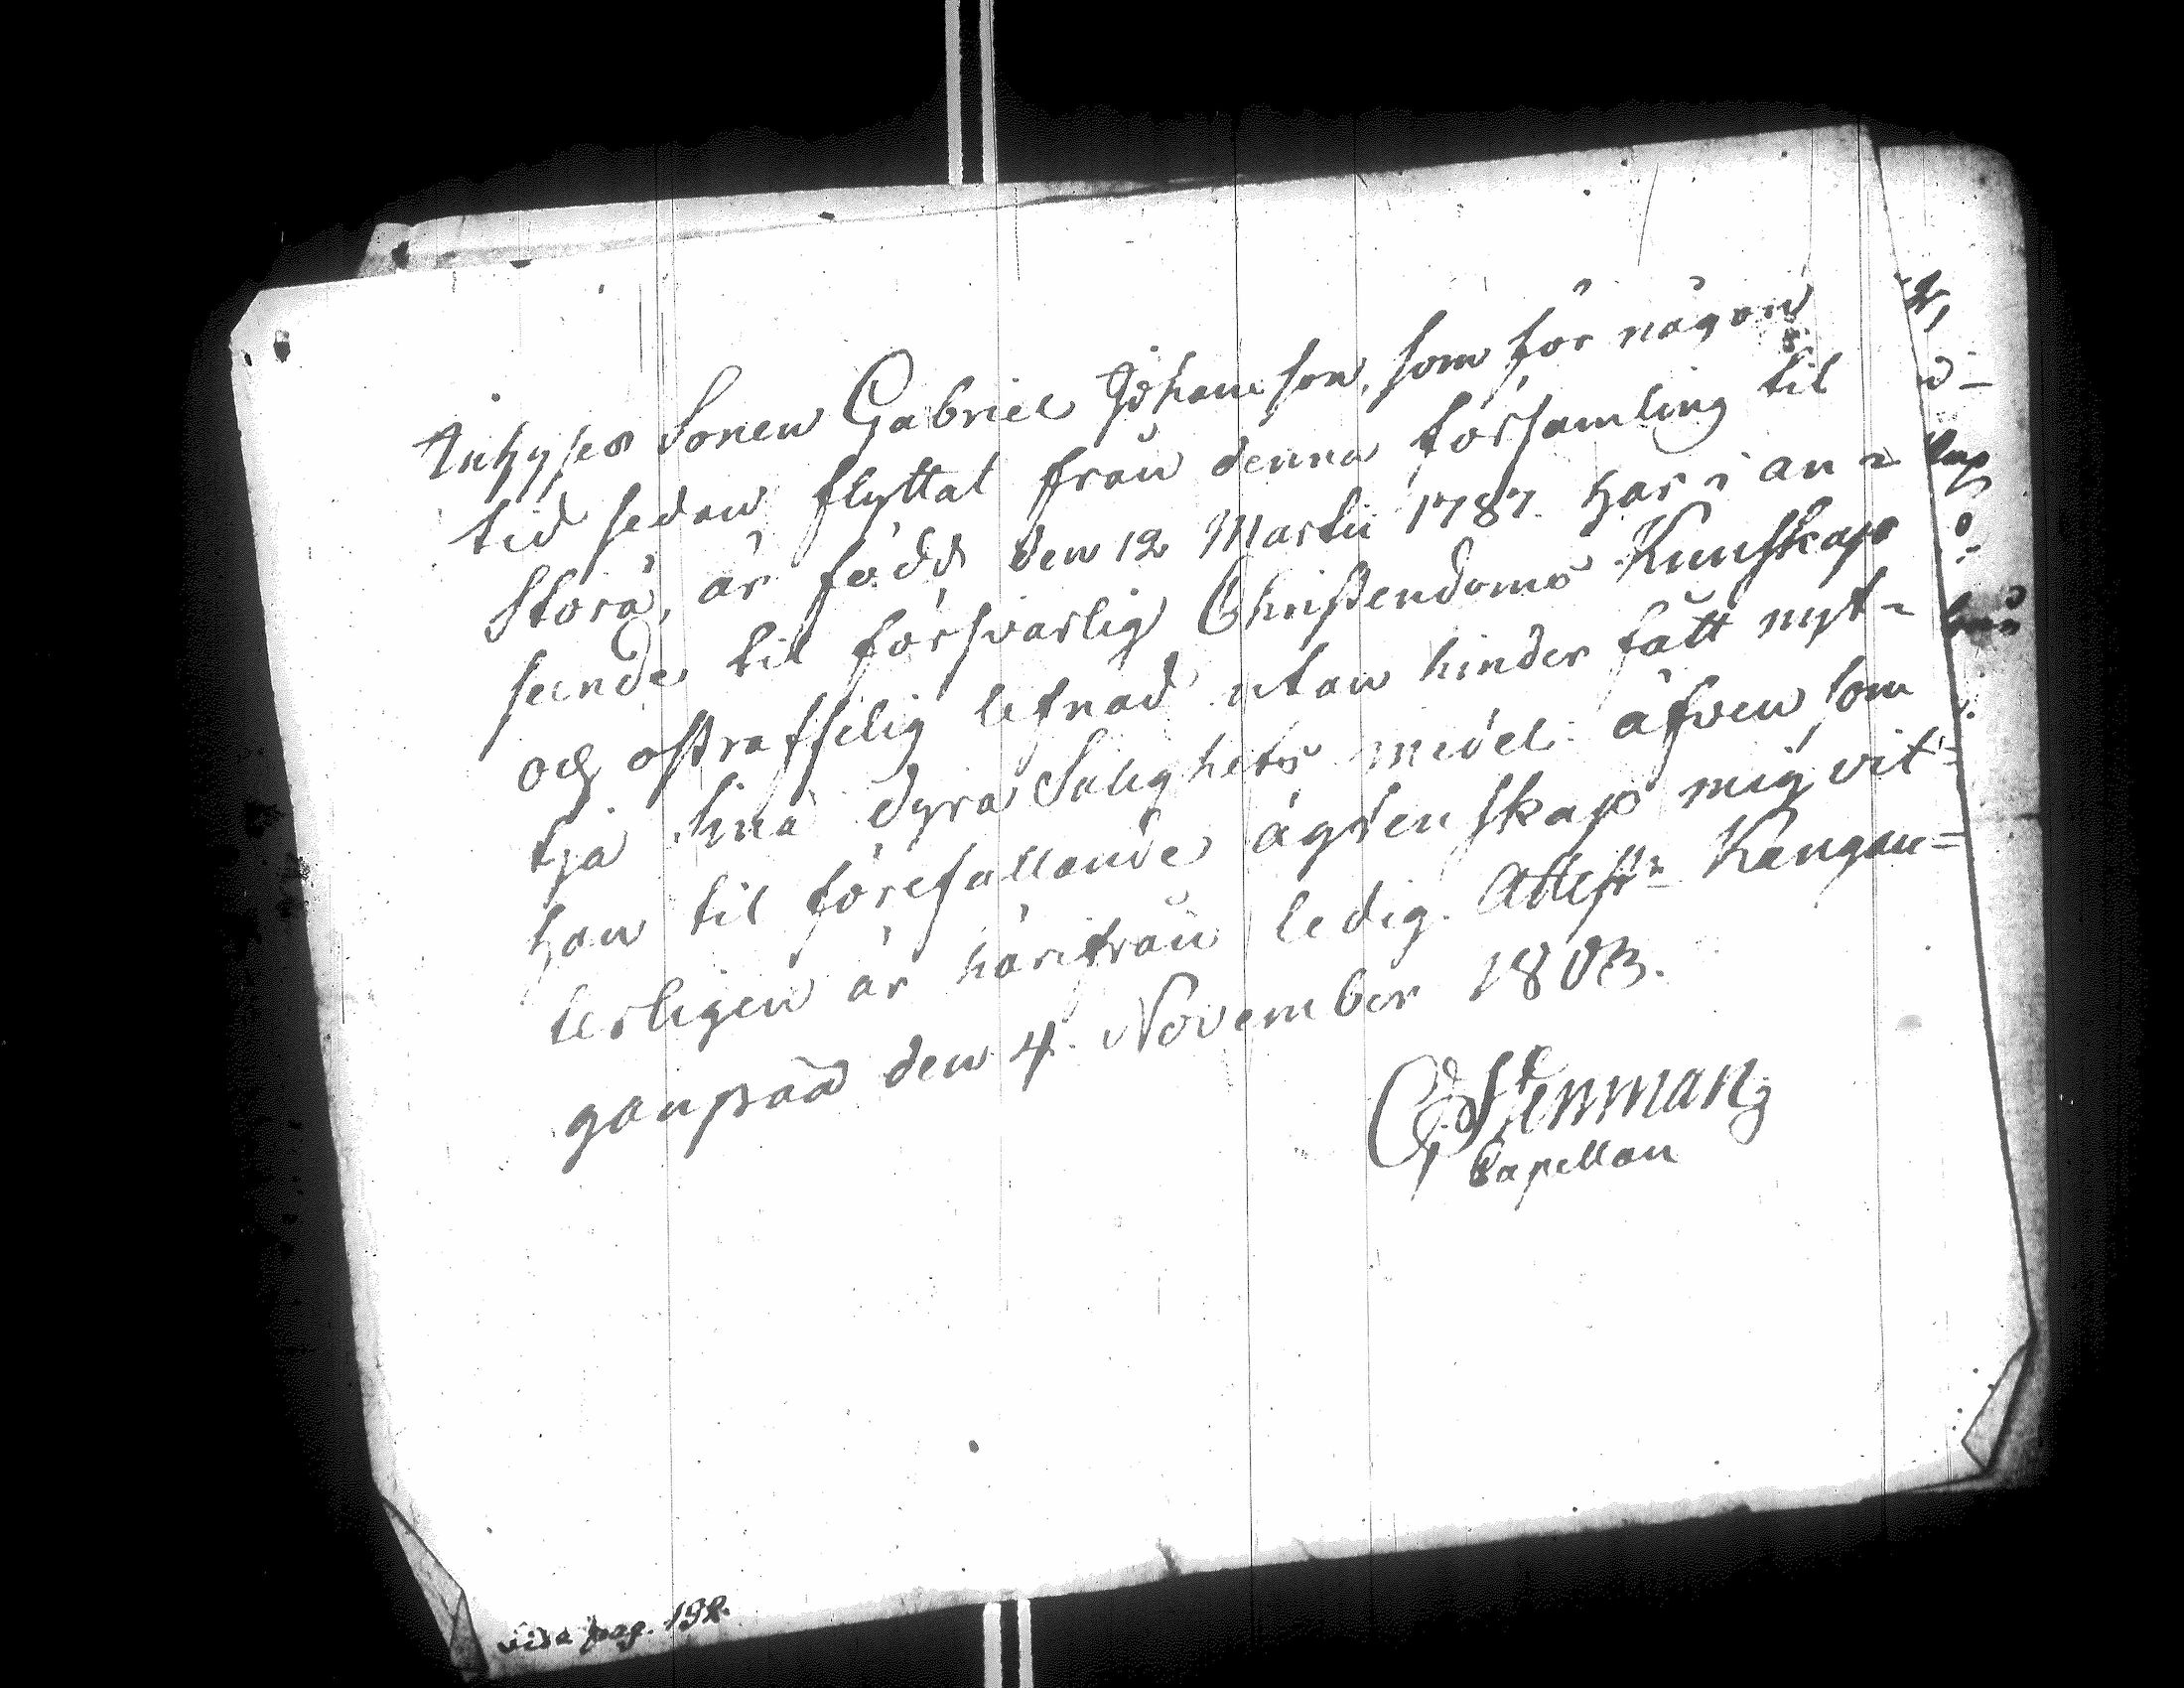 Inhyses Sonen Gabriel Johansson, som för någon
tid sedan flyttat från denna församling til
Storå, är född den 12 Martii 1787. Har i an=
seende til försvarlig Christendoms Kunskap
och ostraffelig lefnad utan hinder fått nyt=
tja sina dyra Salighets medel äfven som
han til förefallande ägtenskap mig vit=
terligen är härifrån ledig. Attest: Kangan=
gonpää den 4. November 1803.
Stenman
Capellan
vide pag. 192.